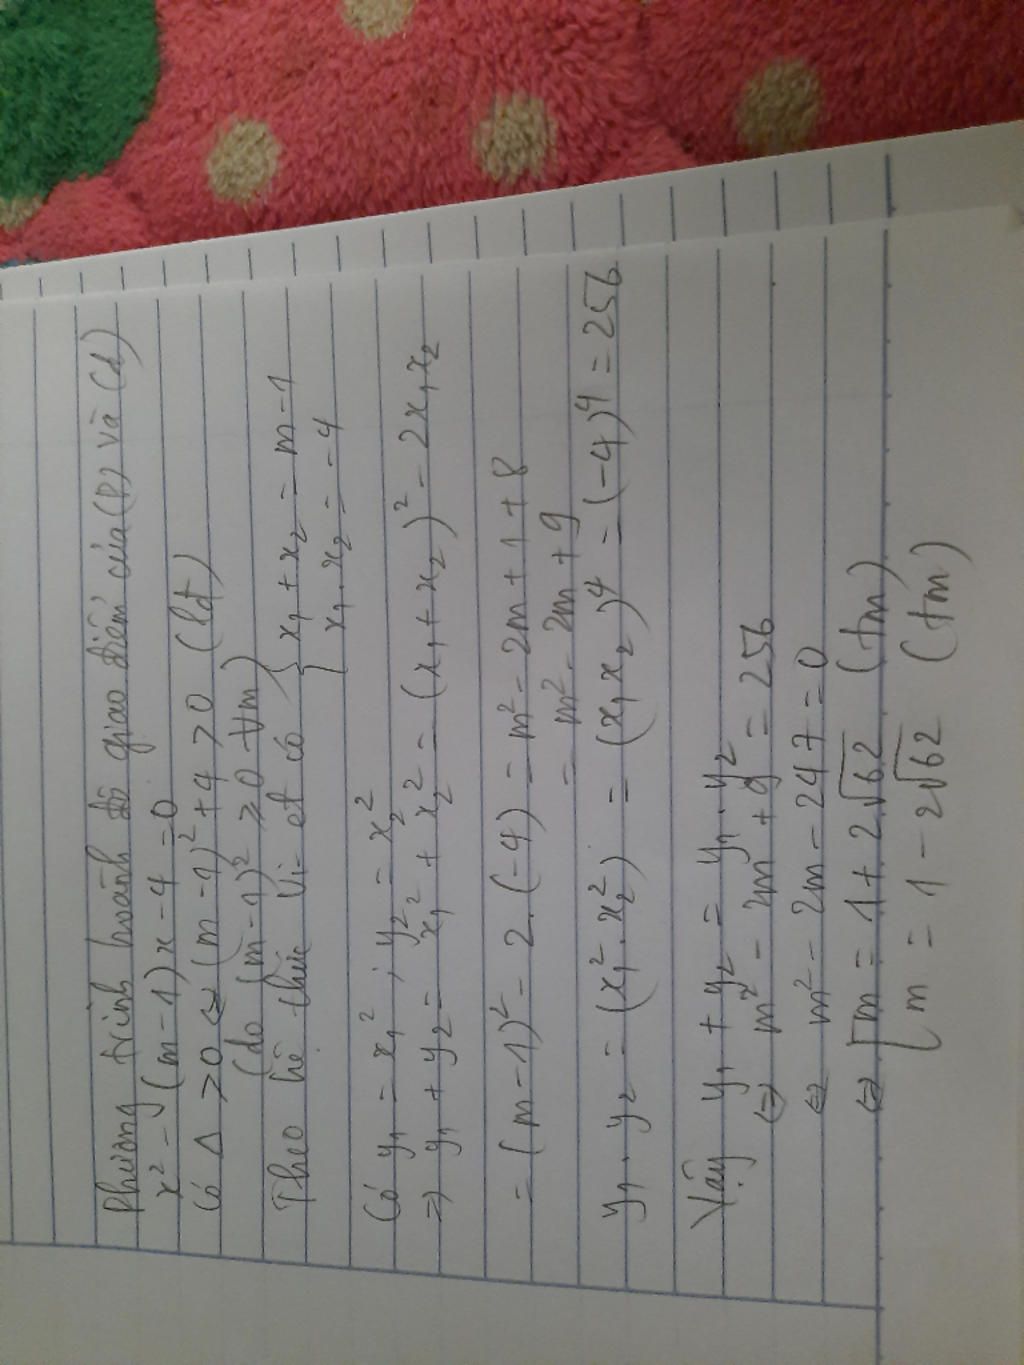 Phương trình hoành độ giao điểm của (P) và (d)
x² - (m-1)x - 4 = 0
Có Δ > 0 ⇔ (m-1)² + 4 > 0 (lđ)
(do (m-1)² ≥ 0 ∀m)
Theo hệ thức Vi-et có { x₁ + x₂ = m-1
x₁.x₂ = -4
Có y₁ = x₁² ; y₂ = x₂²
⇒ y₁ + y₂ = x₁² + x₂² = (x₁ + x₂)² - 2x₁x₂
= (m-1)² - 2.(-4) = m² - 2m + 1 + 8
= m² - 2m + 9
y₁.y₂ = (x₁².x₂²) = (x₁x₂)⁴ = (-4)⁴ = 256
Vậy y₁ + y₂ = y₁.y₂
⇔ m² - 2m + 9 = 256
⇔ m² - 2m - 247 = 0
⇔ [ m = 1 + 2√62 (tm)
[ m = 1 - 2√62 (tm)